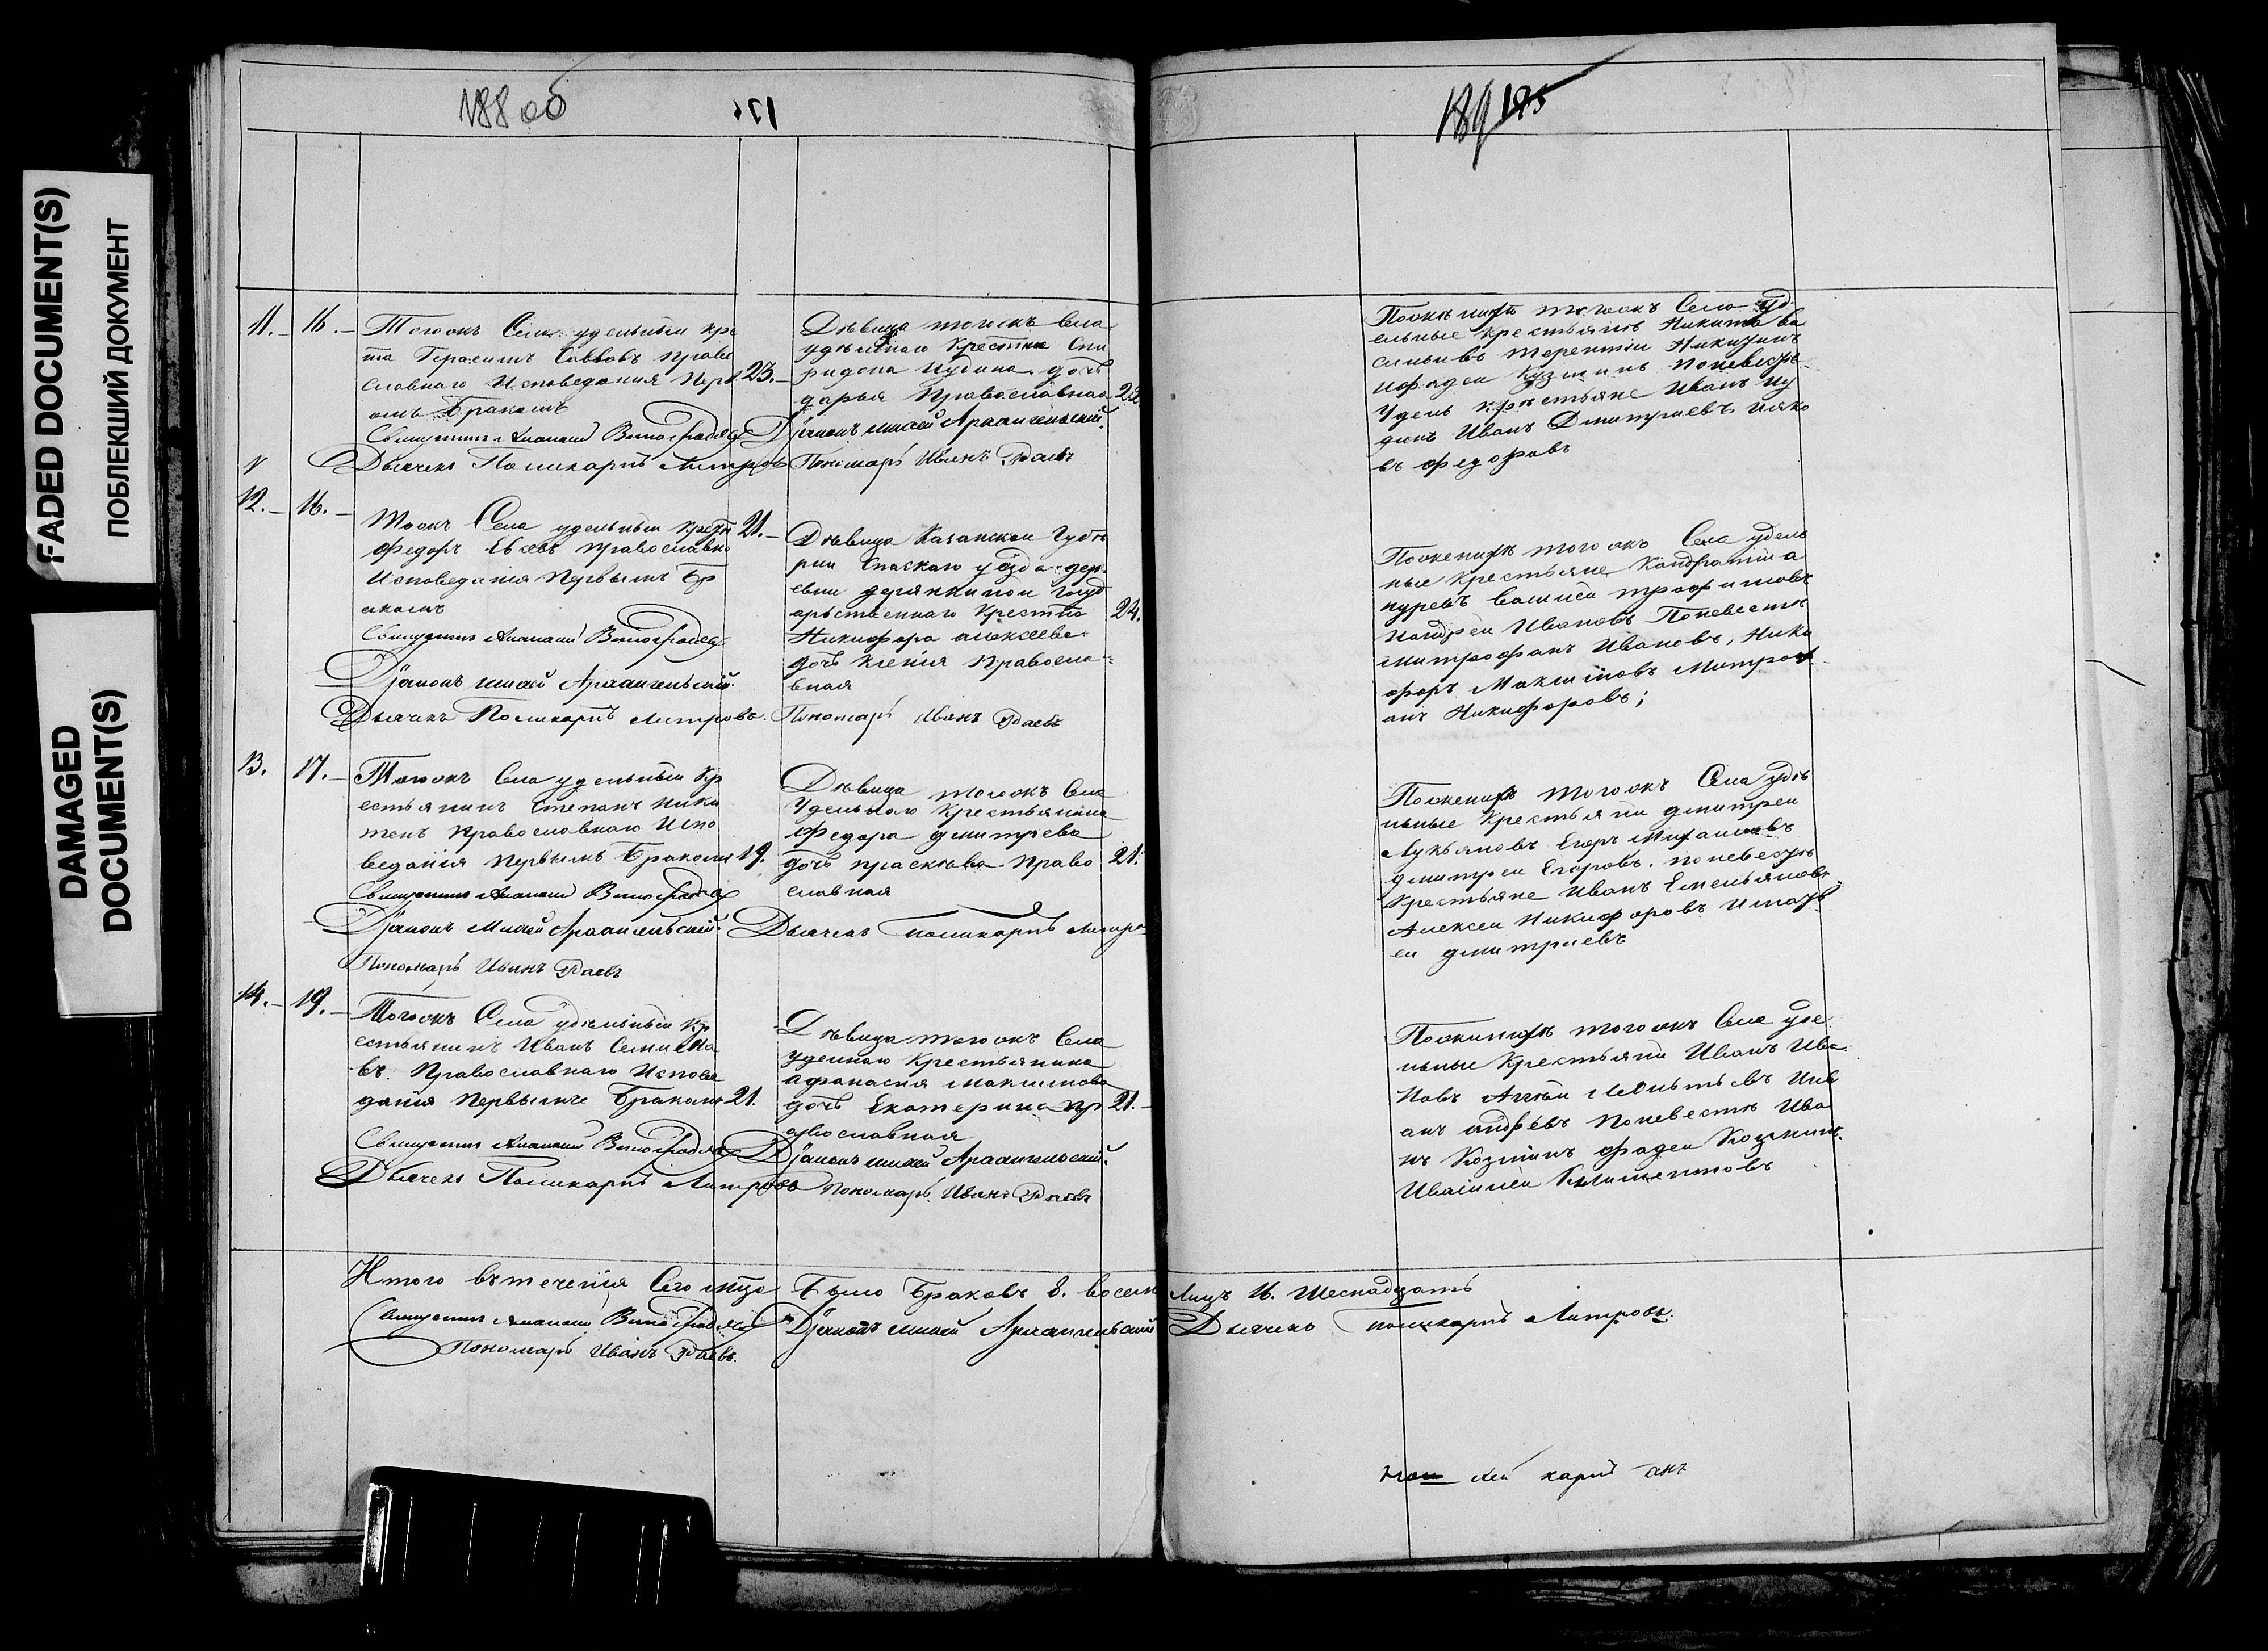 FADED DOCUMENT(S)
ПОБЛЕКШИЙ ДОКУМЕНТ
DAMAGED
DOCUMENT(S)
188 об
189 175
11. 16.
Тогожъ Села удельный кре
та Герасимъ Саввовъ право
славнаго Исповедания Перв
омъ Бракомъ
23.
Священникъ Ананий Виноградовъ
Дьячекъ Поликарпъ Митровъ
Дѣвица тогожъ Села
удѣльнаго Крестна Спи
ридона Иудина дочь
дарья Православная
22.
Диаконъ Михаил Архангельский.
Пономарь Иванъ Раевъ
Поженихѣ тогожъ Села уд
ельные крестьяне Никита ва
сильевъ терентии Никитинъ
ифадеи Кузминъ Поневестѣ
Удель крестьяне Иванъ Иу
динъ Иванъ Дмитриевъ ияко
въ федоровъ
12. 16.
Тогожъ Села удельный крест
федоръ Евсевъ православно
Исповедания Первымъ Бр
акомъ
21.
Священникъ Ананий Виноградовъ
Диаконъ Михаил Архангельский.
Дьячекъ Поликарпъ Митровъ.
Дѣвица Казанскои Губѣ
рнии Спаскаго уѣзда дер
евни
арьственнаго Крестна
Никифора алексѣева
дочь Ксения Правосла-
вная
24.
Пономарь Иванъ Раевъ
Поженихѣ того жъ Села удель
ные крестьяне Кондратии а
нуревъ Василеи трофимовъ
иандреи Ивановъ Поневестѣ
митрофанъ Ивановъ, Ники
форъ Максимовъ Митроф
анъ Никифоровъ;
13. 17.
Тогожъ Села удельный Кр
естьянинъ Степанъ Ники
тинъ Православнаго Испо
ведания Первымъ Бракомъ
19.
Священникъ Ананий Виноградовъ
Диаконъ Михаил Архангельский.
Пономарь Иванъ Раевъ
Дѣвица тогожъ Села
Удельнаго Крестьянина
Федора дмитрева
дочь прасковья Право
славная
21.
Дьячекъ Поликарпъ Митро
Поженихѣ тогожъ Села удѣ
льные Крестьяни дмитреи
Лукьяновъ Егоръ Михаиловъ
дмитреи Егоровъ. поневестѣ
Крестьяне Иванъ Емельяновъ
Алексеи Никифоровъ Иматв
еи дмитриевъ
14. 19.
Тогожъ Села удѣльный Кр
естьянинъ Иванъ Семиона
въ. Православнаго Испове
дания Первымъ Бракомъ
21.
Священникъ Ананий Виноградовъ
Дьячекъ Поликарпъ Митровъ
Дѣвица тогожъ Села
уделнаго Крестьянина
афанасия максимова
дочь Екатерина пр
авославная
21.
Диаконъ Михаил Архангельский.
Пономарь Иванъ Раевъ
Поженихѣ тогожъ Села уде
льные Крестьяни Иванъ Ива
новъ Иив
анъ андрѣвъ Поневестѣ Ива
нъ Козминъ фадеи Козминъ.
Ивасилеи Климентовъ
Итого вътечения Сего мѣца было Браковъ 8. восемь Лицъ 16. Шеснадцать
Священникъ Ананий Виноградовъ Диаконъ Михаил Архангельский Дьячекъ Поликарпъ Митровъ.
Пономарь Иванъ Раевъ.